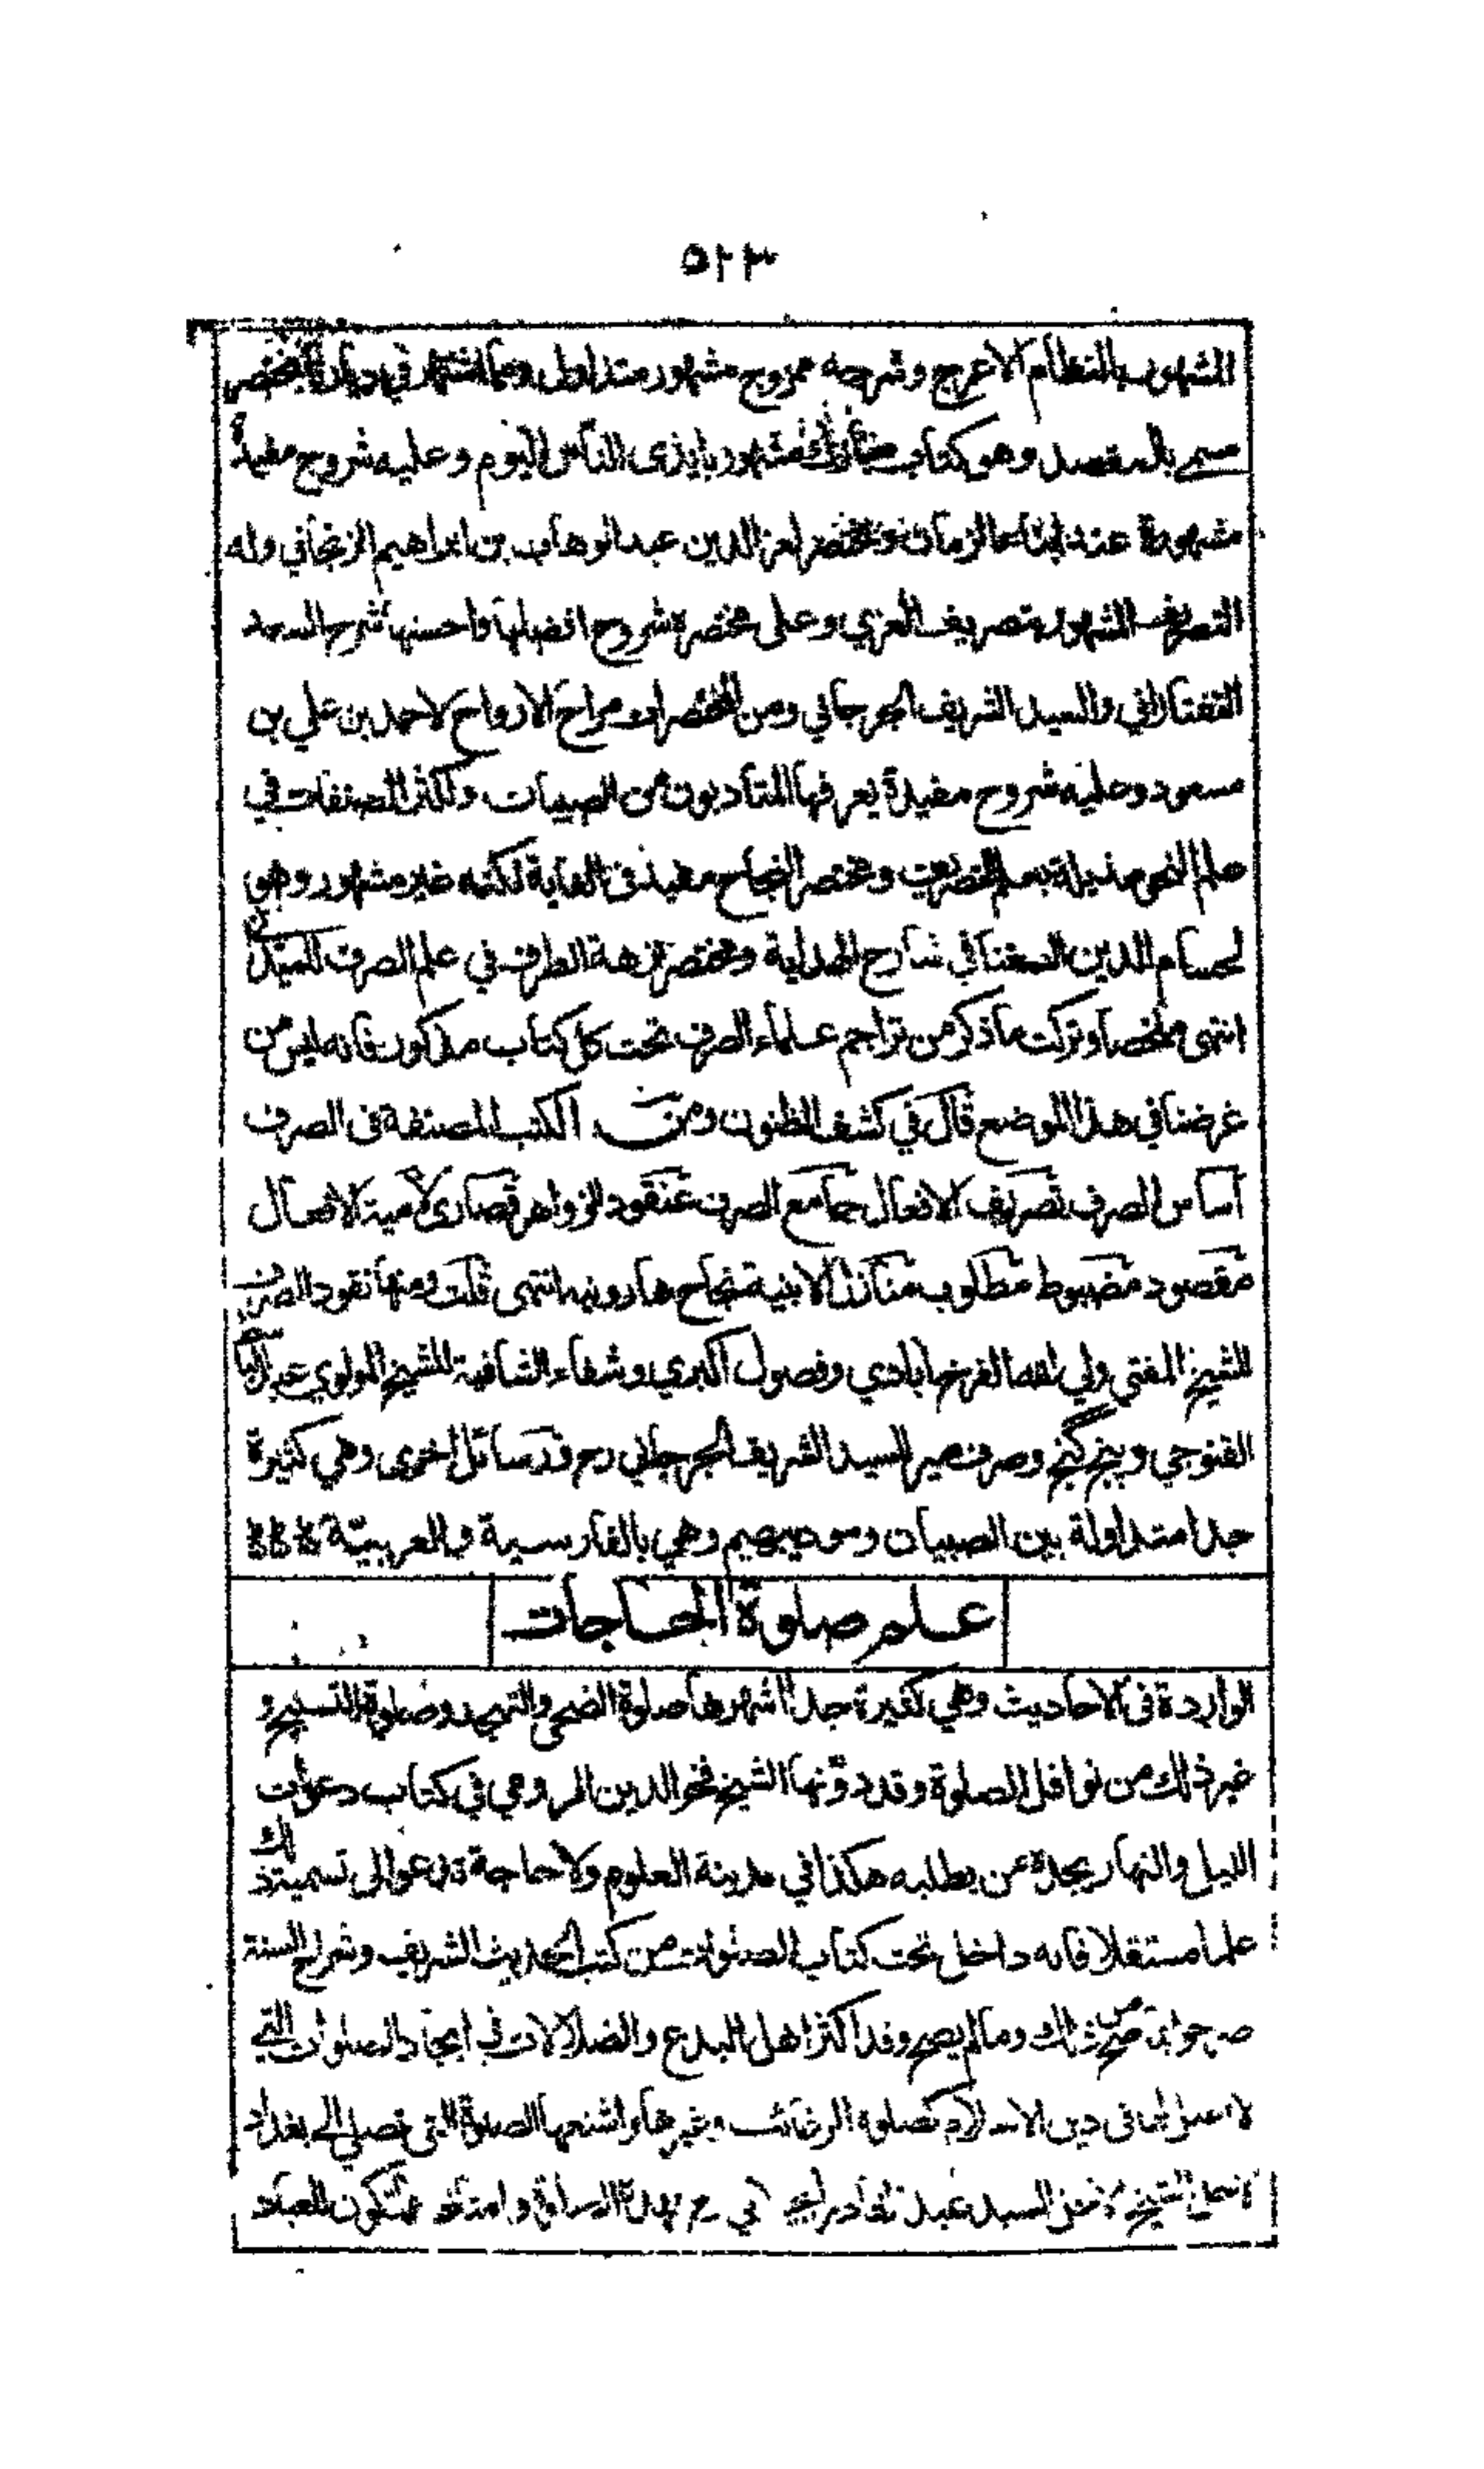 ٥٢٣
المشهور بالنظام الاعرج وشرحه ممزوج مشهور متداول ومما اشتهر في ديارنا مختصر
مسمى بالمقصد وهو كتاب مبارك مشهور بايدى الناس اليوم وعليه شروح مفيدة
مشهورة عند ابناء الزمان ومختصر لعز الدين عبد الوهاب بن ابراهيم الزنجاني وله
التصريف المشهور بتصريف العزي وعلى مختصره شروح افضلها واحسنها شرح السعد
التفتازاني والسيد الشريف الجرجاني ومن المختصرات مراح الارواح لاحمد بن علي بن
مسعود وعليه شروح مفيدة يعرفها المتادبون من الصبيان واكثر المصنفات في
علم النحو مذيلة بعلم التصريف ومختصر النجاح مفيد في الغاية لكنه غير مشهور وهو
لحسام الدين السغناقي شارح الهداية ومختصر نزهة الطرف في علم الصرف للميداني
انتهى ملخصا وتركت ما ذكر من تراجم علماء الصرف تحت كل كتاب مذكور فانه ليس من
غرضنا في هذا الموضع قال في كشف الظنون ومن الكتب المصنفة في الصرف
اساس الصرف تصريف الافعال جامع الصرف عنقود الزواهر قصارى لامية الافعال
مقصود مضبوط مطلوب منازل الابنية نجاح هارونيه انتهى قلت ومنها نقود الصرف
للشيخ المفتى ولي الله الفرخابادي وفصول اكبري وشفاء الشافية للشيخ المولوي عبد الباسط
القنوجي وپنج گنج وصرف مير للسيد الشريف الجرجاني رح ورسائل اخرى وهي كثيرة
جدا متداولة بين الصبيان ومودبيهم وهي بالفارسية والعربية
علم صلوة الحاجات
الواردة في الاحاديث وهي كثيرة جدا اشهرها صلوة الضحى والتهجد وصلوة التسبيح و
غير ذلك من نوافل الصلوة وقد دونها الشيخ فخر الدين الرومي في كتاب دعوات
الليل والنهار يجده من يطلبه هكذا في مدينة العلوم ولا حاجة تدعو الى تسمية ذلك
علما مستقلا فانه داخل تحت كتاب الصلوات من كتب الحديث الشريف وشراح السنة
صرحوا بما صح من ذلك وما لم يصح وقد اكثر اهل البدع والضلالات في ايجاد الصلوات التي
لا اصل لها في دين الاسلام كصلوة الرغائب وغيرها واشنعها الصلوة التي تصلى الى بغداد
الشيخ السيد عبد القادر